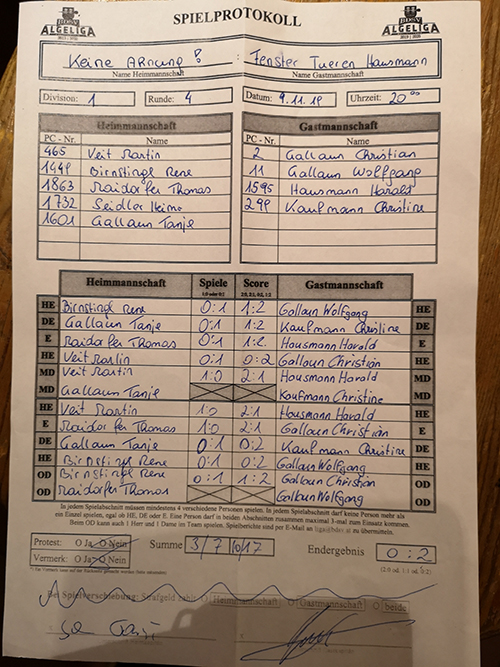 SPIELPROTOKOLL
BDSV ALGELIGA BDSV ALGELIGA
Keine Ahnung! : Fenster Tueren Hausmann
Name Heimmannschaft Name Gastmannschaft
Division: 1 Runde: 4 Datum: 9.11.19 Uhrzeit: 20 00
Heimmannschaft Gastmannschaft
PC - Nr. Name PC - Nr. Name
465 Veit Martin 2 Gallaun Christian
1449 Birnstingl Rene 11 Gallaun Wolfgang
1863 Raidorfer Thomas 1595 Hausmann Harald
1732 Seidler Heimo 299 Kaufmann Christine
1601 Gallaun Tanja
Heimmannschaft Spiele Score Gastmannschaft
1:0 oder 0:1 2:0, 2:1, 0:2, 1:2
HE Birnstingl Rene 0:1 1:2 Gallaun Wolfgang HE
DE Gallaun Tanja 0:1 1:2 Kaufmann Christine DE
E Raidorfer Thomas 0:1 1:2 Hausmann Harald E
HE Veit Martin 0:1 0:2 Gallaun Christian HE
MD Veit Martin 1:0 2:1 Hausmann Harald MD
MD Gallaun Tanja Kaufmann Christine MD
HE Veit Martin 1:0 2:1 Hausmann Harald HE
E Raidorfer Thomas 1:0 2:1 Gallaun Christian E
DE Gallaun Tanja 0:1 0:2 Kaufmann Christine DE
HE Birnstingl Rene 0:1 0:2 Gallaun Wolfgang HE
OD Birnstingl Rene 0:1 1:2 Gallaun Christian OD
OD Raidorfer Thomas Gallaun Wolfgang OD
In jedem Spielabschnitt müssen mindestens 4 verschiedene Personen spielen. In jedem Spielabschnitt darf keine Person mehr als
ein Einzel spielen, egal ob HE, DE oder E. Eine Person darf in beiden Abschnitten zusammen maximal 3-mal zum Einsatz kommen.
Beim OD kann auch 1 Herr und 1 Dame im Team spielen. Spielberichte sind per E-Mail an liga@bdsv.at zu übermitteln.
Protest: O Ja O Nein Summe 3/7 10/17 Endergebnis 0:2
Vermerk: O Ja O Nein (2:0 od. 1:1 od. 0:2)
Bei Spielverschiebung: Strafgeld zahlt O Heimmannschaft O Gastmannschaft O beide